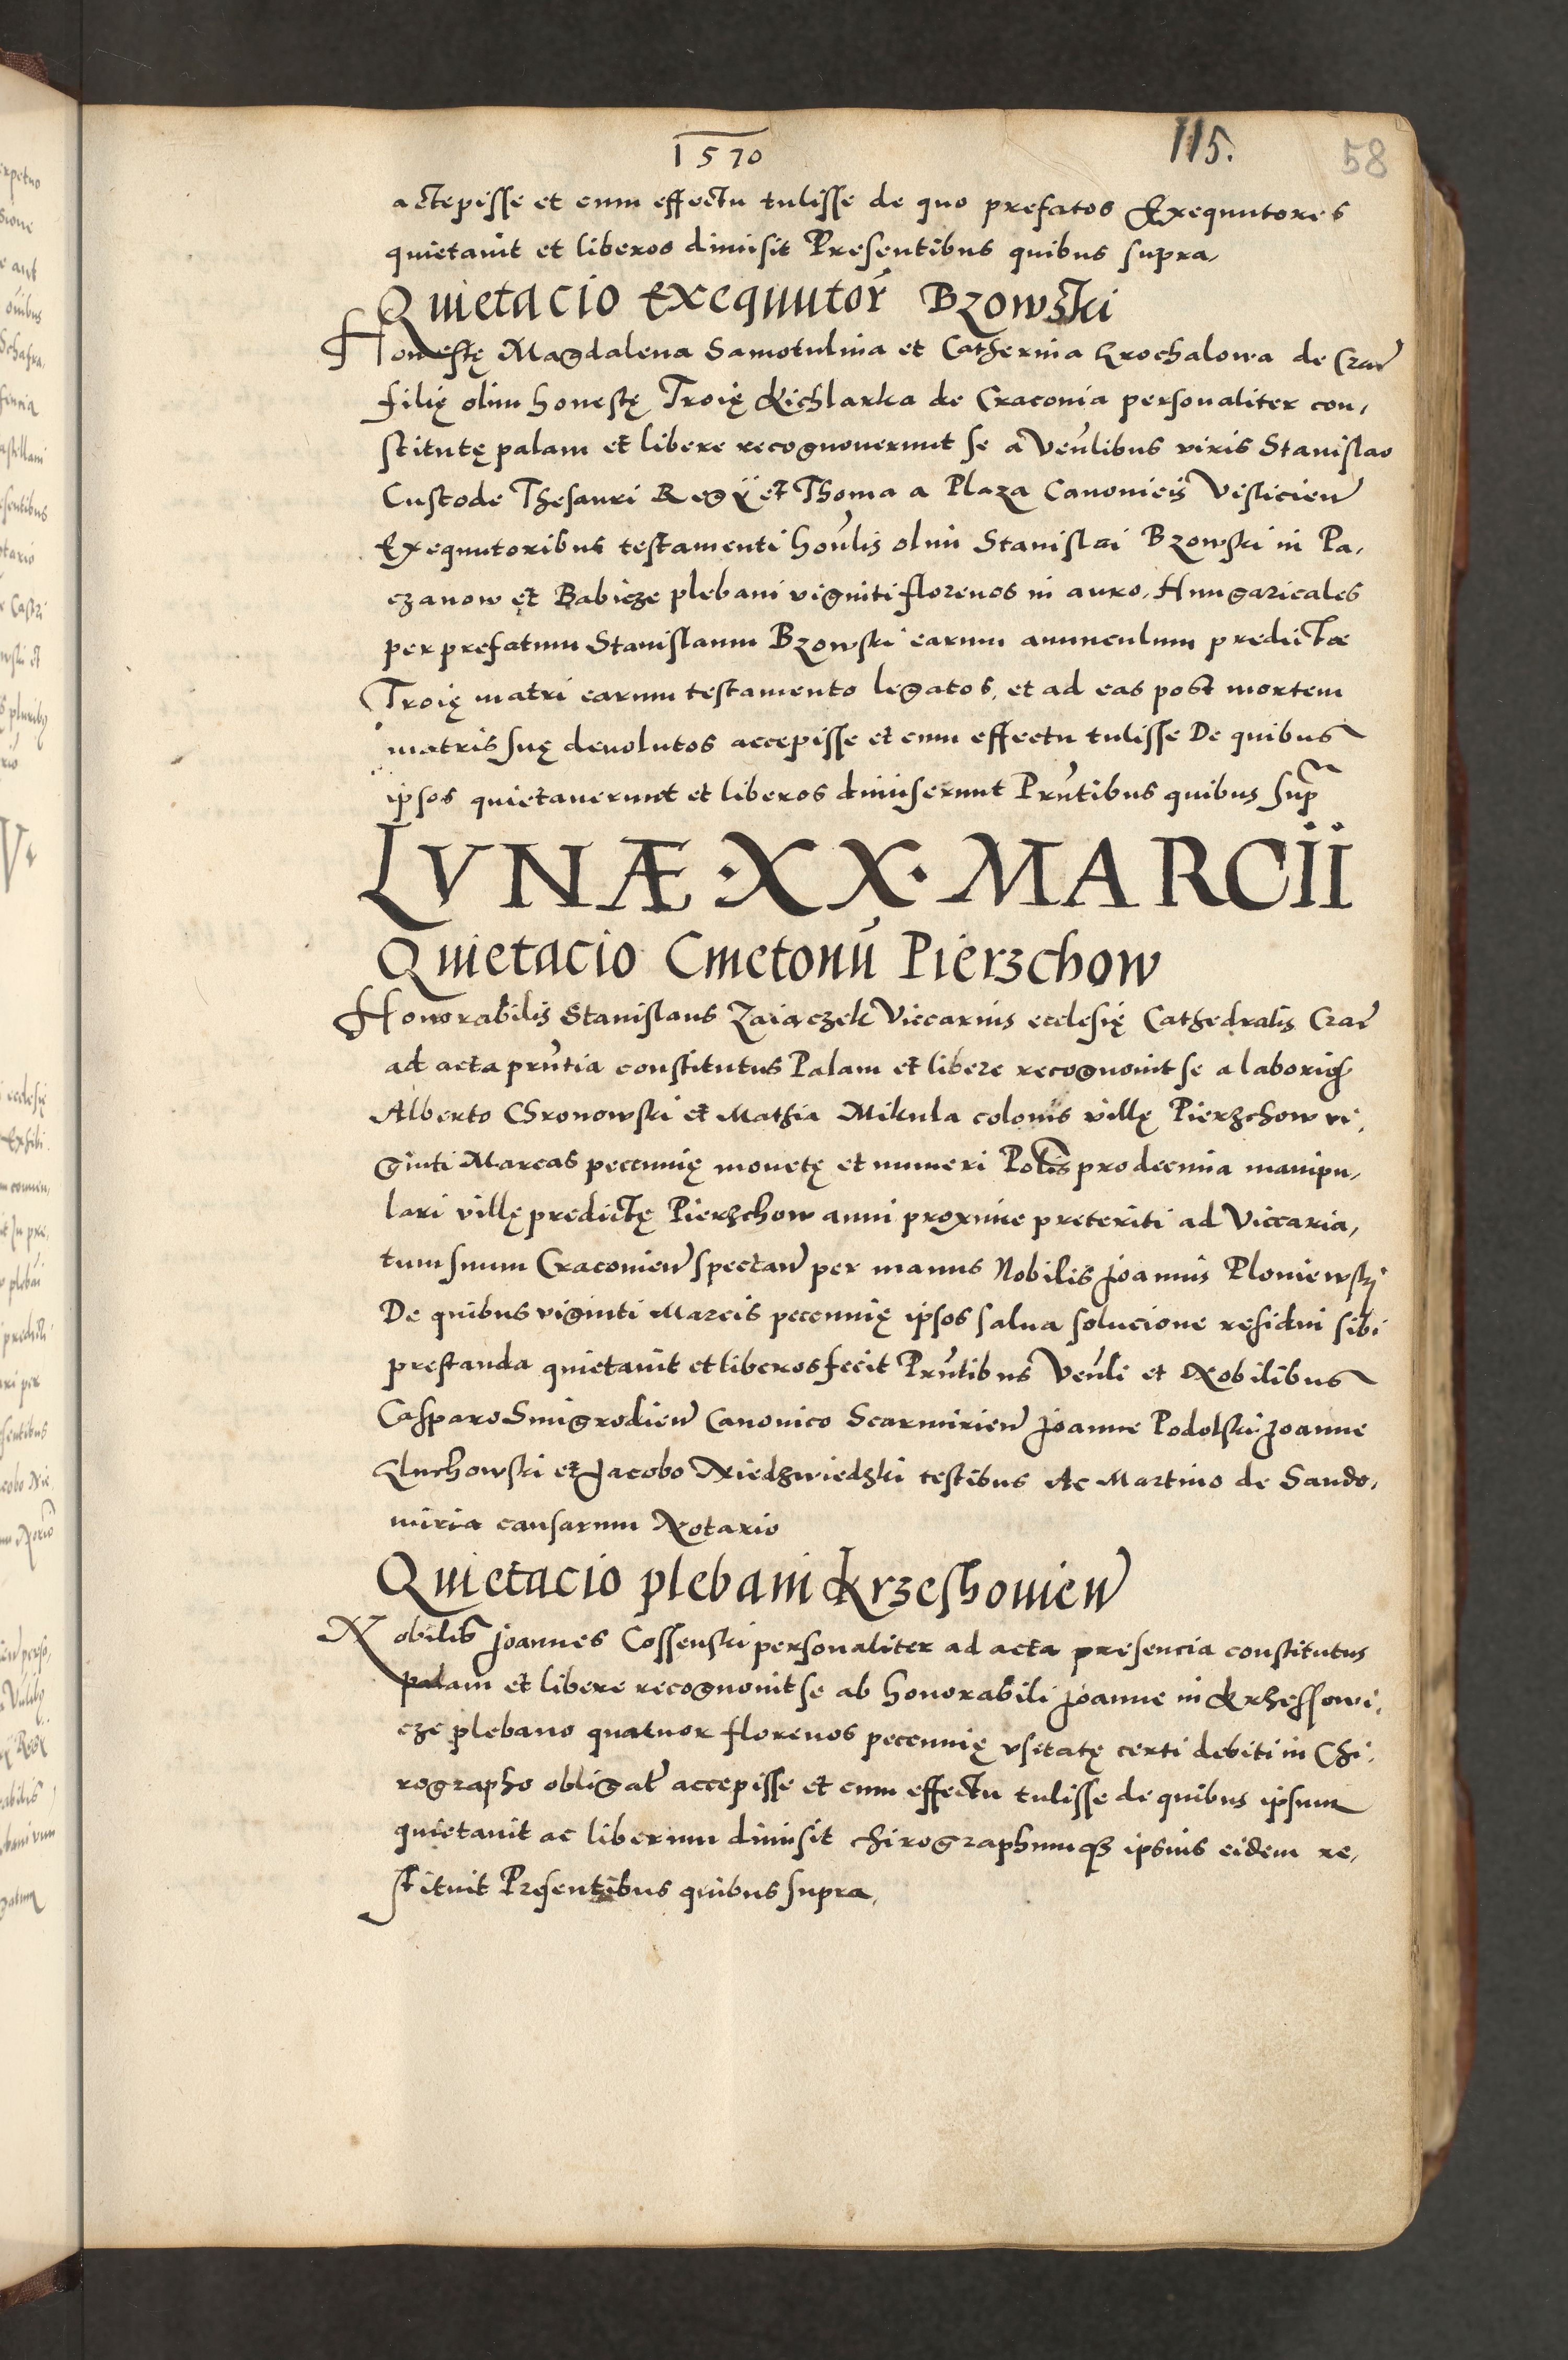 1570
115.
58
accepisse et cum effectu tulisse de quo prefatos Exequutores
quietavit et liberos dimisit Presentibus quibus supra,
Quietacio Exequutor̃ Bzowski
Honestę Magdalena Samotulina et Catherina Krochalowa de Crac̃
filię olim honestę Troię Kichlarka de Cracovia personaliter con,
stitutę palam et libere recognoverunt se a Venlibus viris Stanislao
Custode Thesauri Regii et Thoma a Plaza Canonicis Visliciens̃
Exequutoribus testamenti honlis olim Stanislai Bzowski in Pa,
czanow et Babicze plebani viginti florenos in auro, Hungaricales
per prefatum Stanislaum Bzowski earum avunculum predictæ
Troię matri earum testamento legatos, et ad eas post mortem
matris suę devolutos accepisse et cum effectu tulisse De quibus
ipsos quietaverunt et liberos dimiserunt Prñtibus quibus sup̃
LVNÆ·XX·MARCII
Quietacio Cmetonũ Pierzchow
Honorabilis Stanislaus Zaiączek Viccarius ecclesię Cathedralis Crac̃
ad acta prñtia constitutus Palam et libere recognovit se a laborig
Alberto Chronowski et Mathia Mikula colonis villę Pierzchow vi,
ginti Marcas pecunnię monetę et numeri Polis pro decima manipu,
lari villę predictę Pierzchow anni proxime preteriti ad Viccaria,
tum suum Cracovien̄ spectan̄ per manus Nobilis Joannis Ploniewski
De quibus viginti Marcis pecunnię ipsos salva solucione residui sibi
prestanda quietavit et liberos fecit Prñtibus Venli et Nobilibus
Casparo Smigrodien̄ Canonico Scarmirien̄ Joanne Podolski Joanne
Gluchowski et Jacobo Niedzwiedzki testibus Ac Martino de Sando,
miria causarum Notario
Quietacio plebani Krzeshovien̄
Nobilis Joannes Cossenski personaliter ad acta presencia constitutus
palam et libere recognovit se ab honorabili Joanne in Krzessowi,
cze plebano quatuor florenos pecunnię usitatę certi debiti in Chi,
rographo obligat̃ accepisse et cum effectu tulisse de quibus ipsum
quietavit ac liberum dimisit chirographumq3 ipsius eidem re,
stituit Presentibus quibus supra,